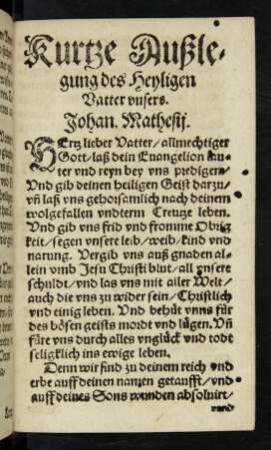 Kurtze Außle-
gung des Heyligen
Vatter vnsers.
Johan. Mathesij.
HErtz lieber Vatter / allmechtiger
Gott / laß dein Euangelion lau-
ter vnd reyn bey vns predigen /
Vnd gib deinen heiligen Geist darzu /
vñ laß vns gehorsamlich nach deinem
wolgefallen vndterm Creutze leben.
Vnd gib vns frid vnd fromme Obrig
keit / segen vnsere leib / weib / kind vnd
narung. Vergib vns auß gnaden al-
lein vmb Jesu Christi blut / all vnsere
schuldt / vnd las vns mit aller Welt /
auch die vns zu wider sein / Christlich
vnd einig leben. Vnd behüt vnns für
des bösen geists mordt vnd lügen. Vñ
füre vns durch alles vnglück vnd todt
seligklich ins ewige leben.
Denn wir sind zu deinem reich vnd
erbe auff deinen namen getaufft / vnd
auff deines Sons wunden absoluirt /
vnnd